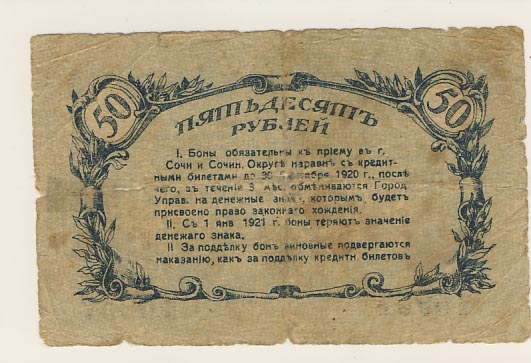 50
50
ПЯТЬДЕСЯТЪ
РУБЛЕЙ
I. Боны обязательны къ прiему въ г.
Сочи и Сочин. Округѣ наравнѣ съ кредит-
ными билетами до 30 Сентября 1920 г., послѣ
чего, въ теченiе 3 мѣс. обмѣниваются Город
Управ. на денежные знаки, которымъ будетъ
присвоено право законнаго хожденiя.
II. Съ 1 янв 1921 г боны теряютъ значенiе
денежаго знака.
II За поддѣлку бонъ виновные подвергаются
наказанiю, какъ за поддѣлку кредитн. билетовъ